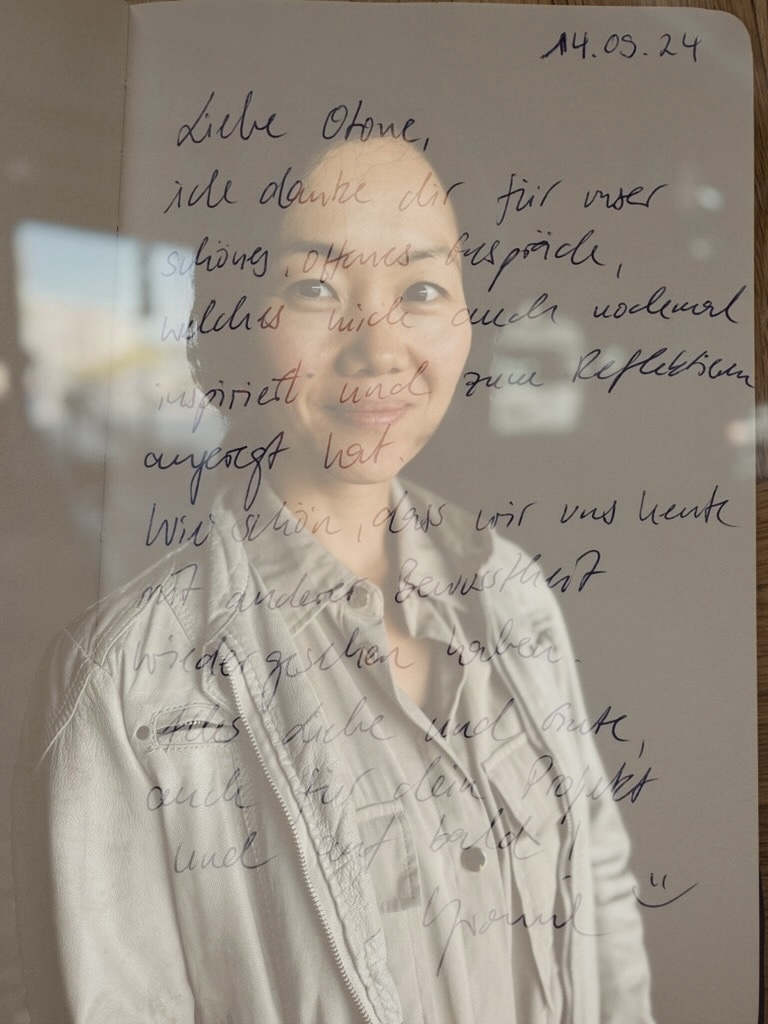 14.09.24
Liebe Otone,
ich danke dir für unser
schönes, offenes Gespräch,
welches mich auch nochmal
inspiriert und zum Reflektieren
angeregt hat.
Wie schön, dass wir uns heute
mit anderer Bewusstheit
wiedergesehen haben.
Alles Liebe und Gute,
auch für dein Projekt
und auf bald!